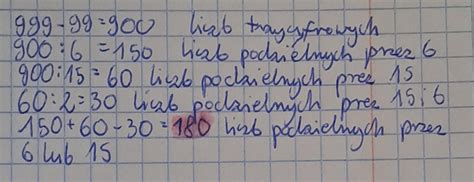 999-99=900 liczb trzycyfrowych
900:6=150 liczb podzielnych przez 6
900:15=60 liczb podzielnych przez 15
60:2=30 liczb podzielnych przez 15 i 6
150+60-30=180 liczb podzielnych przez
6 lub 15